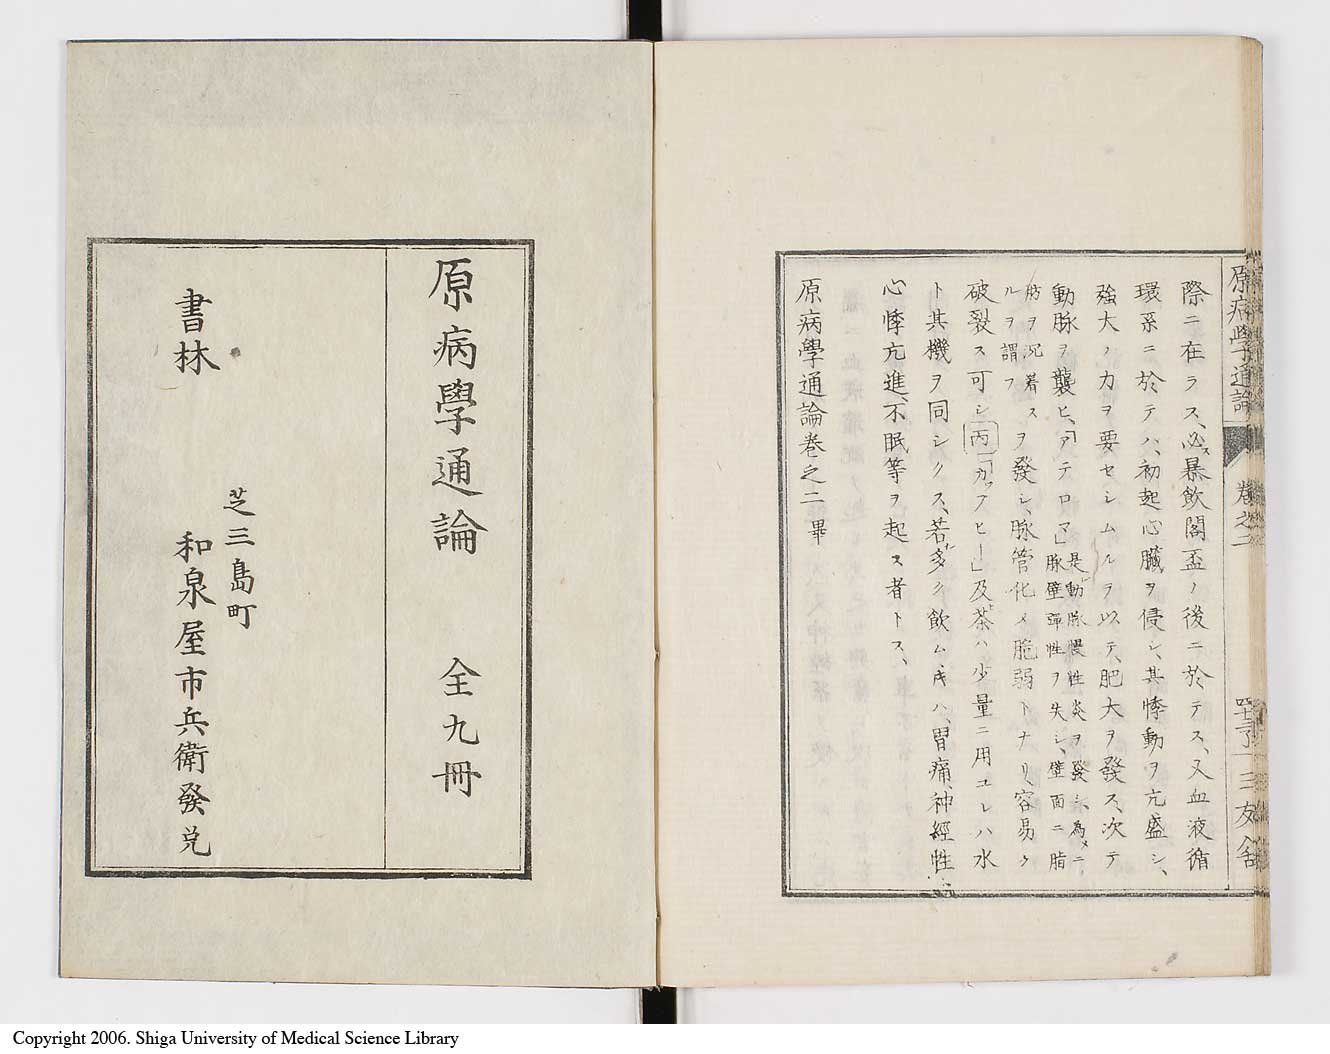 原病學通論
卷之二
三友舍
際ニ在ラス、必ス暴飲闔盃ノ後ニ於テス、又血液循
環系ニ於テハ、初起心臓ヲ侵シ、其悸動ヲ亢盛シ、
強大ノ力ヲ要セシムルヲ以テ、肥大ヲ發ス、次テ
動脈ヲ襲ヒ、「アテロマ」是動脈慢性炎ヲ發シ、為メニ、
脈壁彈性ヲ失シ、壁面ニ脂
肪ヲ沉着ス
ルヲ謂フヲ發シ、脈管化メ脆弱トナリ、容易ク
破裂ス可シ丙「カツヒー」及ヒ茶ハ少量ニ用ユレハ水
ト其機ヲ同シクス、若シ多ク飲ムキハ、胃痛、神經性
心悸亢進、不眠等ヲ起ス者トス、
原病學通論卷之二畢
原病學通論 全九冊
芝三島町
書林 和泉屋市兵衛發兌
Copyright 2006. Shiga University of Medical Science Library